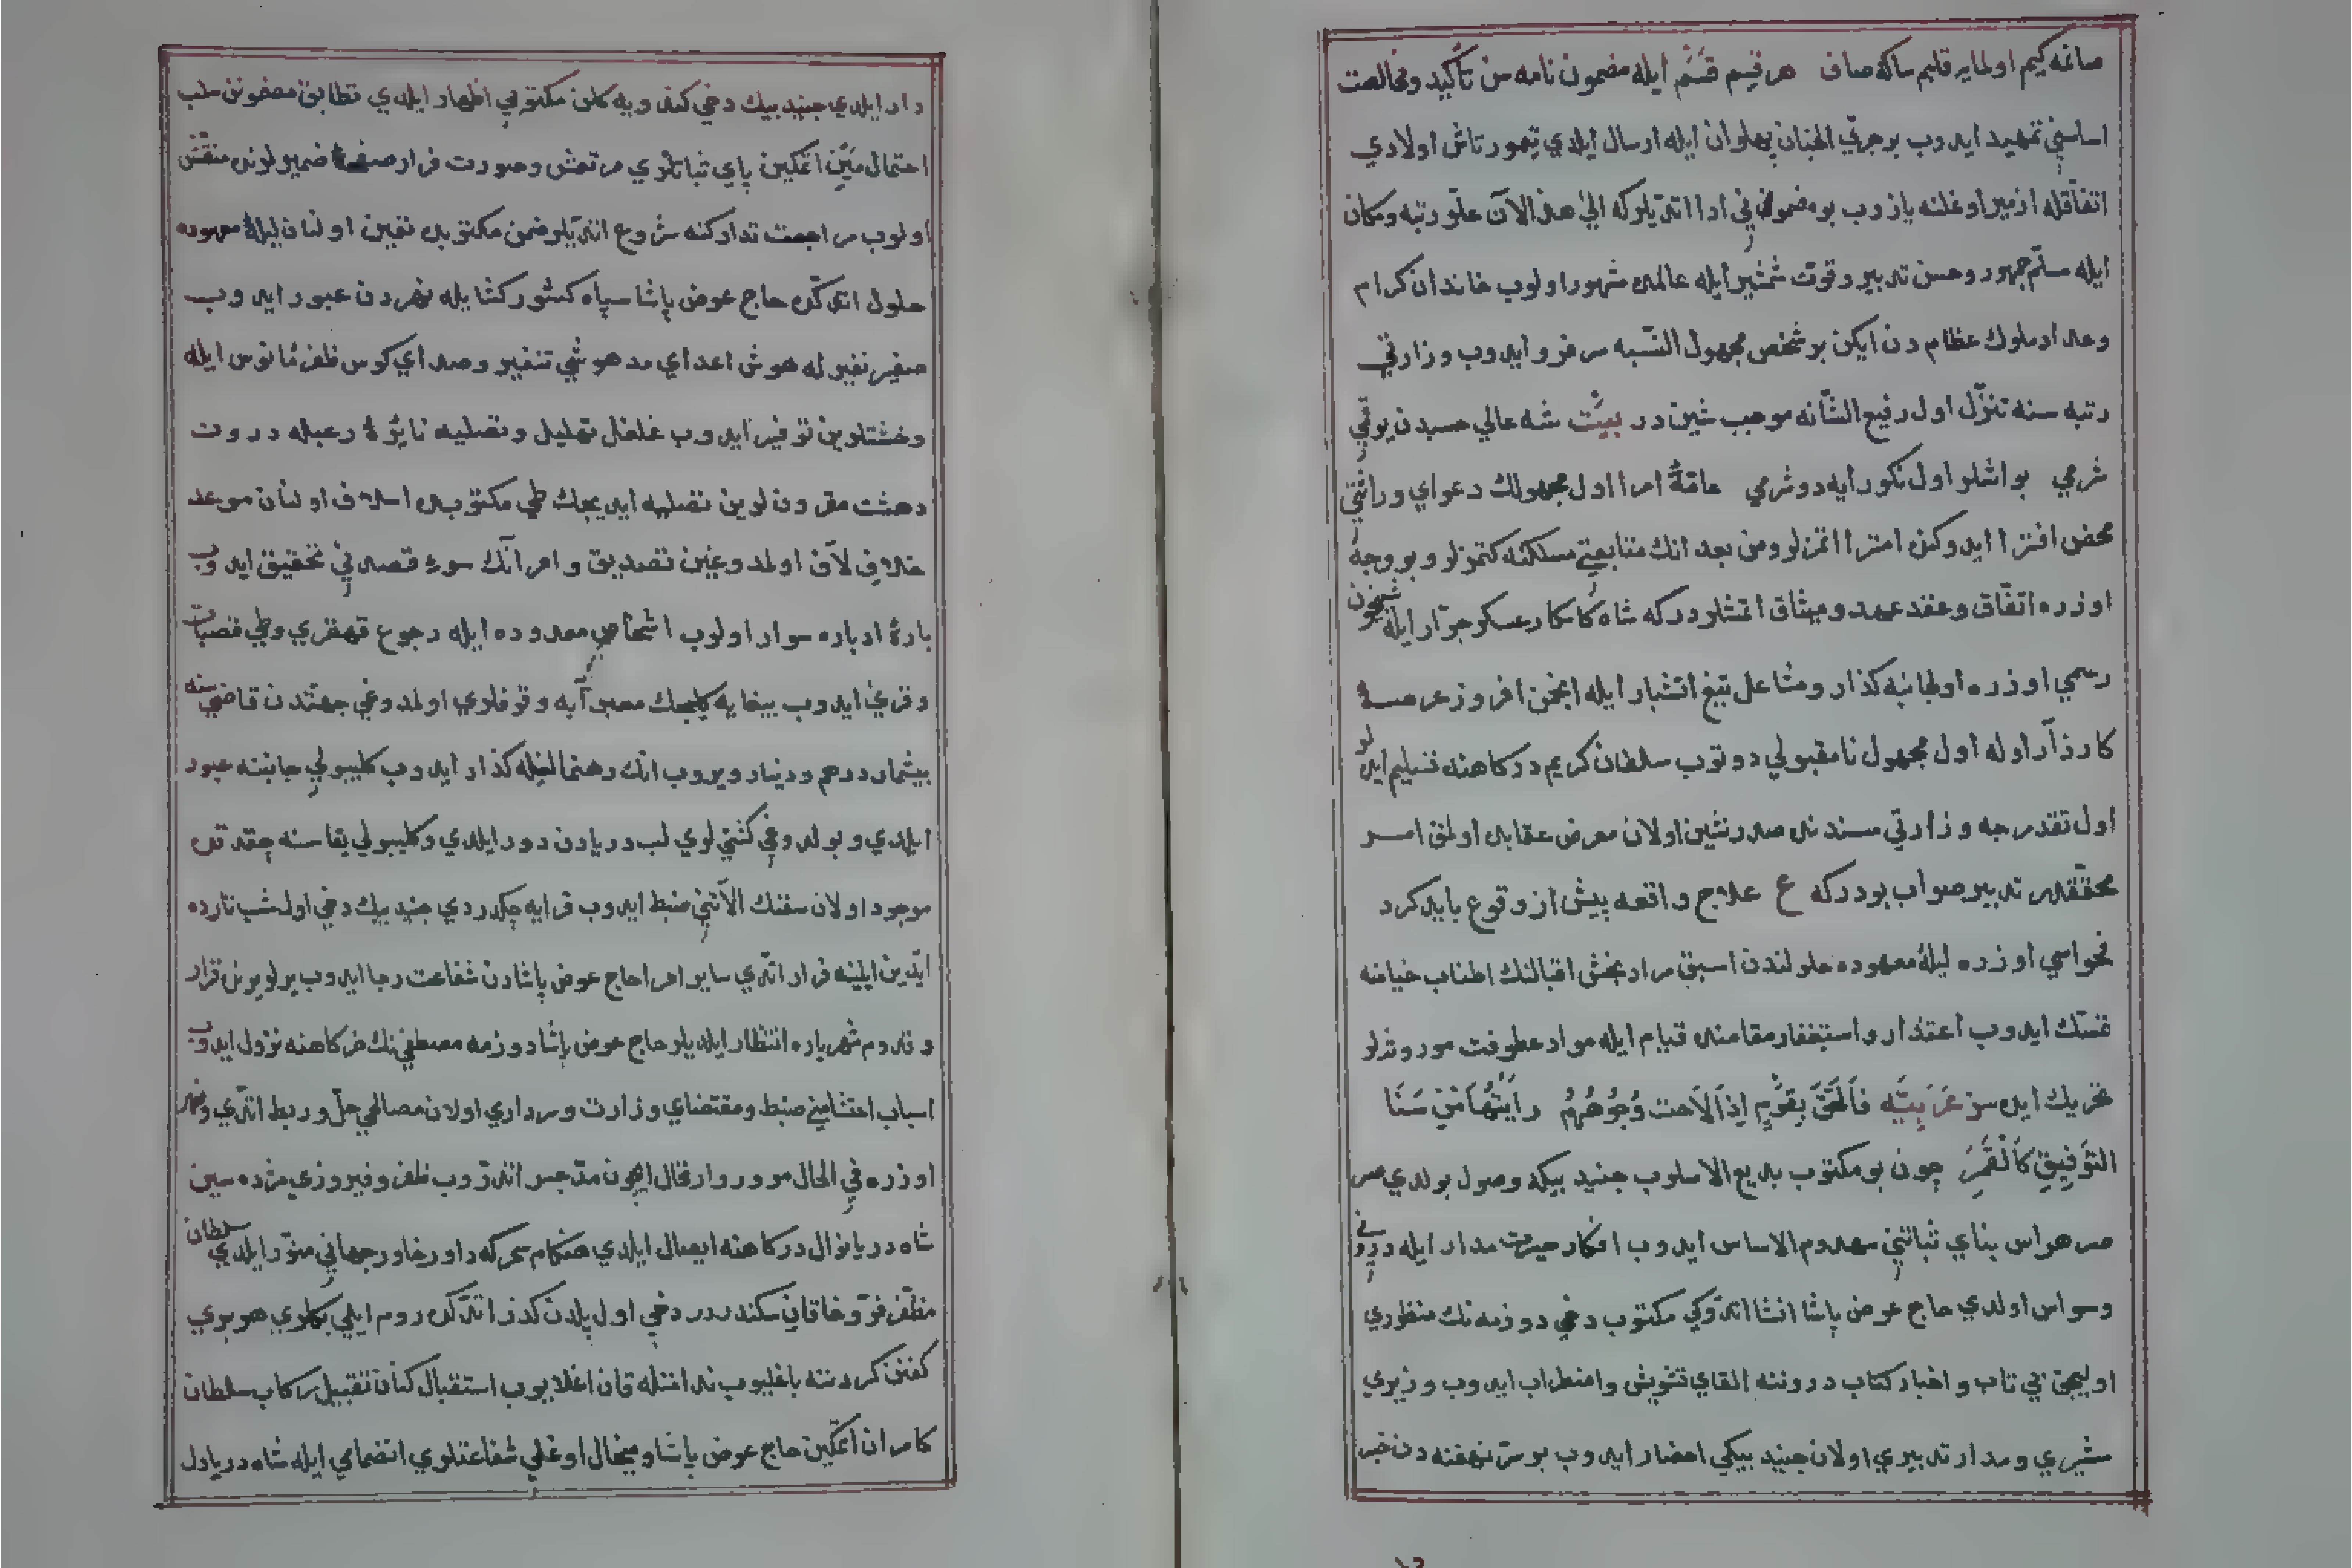 صانه كيم اولمايه قلبم ساكه صاف هر قيم قسم ايله مضمون نامه سن تأكيد ومخالصت
اساسني تمهيد ايدوب برجري الجنان پهلوان ايله ارسال ايلدي تيمور تاش اولادي
اتفاقله ازمير اوغلنه يازوب بو مضموني ادا اتديلركه الى هذا الآن علو رتبه ومكان
ايله مسلم جمهور وحسن تدبير وقوت شمشير ايله عالمده مشهور اولوب خاندان كرام
وعداد ملوك عظام دن ايكن بر شخص مجهول النسبه سر فرو ايدوب وزارتي
رتبه سنه تنزل اول رفيع الشانه موجب شين در بيت شه عالي حسبدن يوقي
شرمي بو اشلر اول نكو رأيه دوشرمي عامة امرا اول مجهولك دعواي وراثتي
محض افترا ايدوكنه امترا اتمزلر ومن بعد انك متابعتي مسلكنه كتمزلر وبو وجه
اوزره اتفاق وعقد عهد وميثاق اتمشلردركه شاه كامكار عسكر جرار ايله شبخون
رسمي اوزره اولجانبه كذار ومشاعل تيغ اتشبار ايله انجمن افروز عرصه
كارزار اوله اول مجهول نامقبولي دوتوب سلطان كريم دركاهنه تسليم ايده لر
اول تقدرجه وزارتي مسندنده صدرنشين اولان معرض عقابده اولمق امر
محققدر تدبير صواب بودركه ع علاج واقعه پيش از وقوع بايد كرد
فحواسي اوزره ليلۀ معهوده حلولندن اسبق مراد بخش اقبالنك اطناب خيامنه
تمسك ايدوب اعتذار واستغفار مقامنده قيام ايله مواد عطوفت موروثه لر
تحريك ايده سز عربيه فالحق بقوم اذا لاحت وجوههم رايتها من سنا
التوفيق كالقمر چون بو مكتوب بديع الاسلوب جنيد بيكه وصول بولدي صر
صر هراس بناي ثباتني مهدوم الاساس ايدوب افكار حيرت مدار ايله دروني
وسواس اولدي حاج عوض پاشا انشا اتدوكي مكتوب دخي دوزمه نك منظوري
اوليجق بي تاب واخبار كتاب دروننه القاي تشويش واضطراب ايدوب وزيري
مشيري ومدار تدبيري اولان جنيد بيكي احضار ايدوب بو سر نهفته دن خبر
دار ايلدي جنيد بيك دخي كندويه كلن مكتوبي اظهار ايلدي تطابق مضمونن سلب
احتمال مين اتمكين پاي ثباتلري مرتعش وصورت فرار صفحۀ ضميرلرنده منقش
اولوب مراجعت تداركنه شروع اتديلر ضمن مكتوبده تعيين اولنان ليلۀ معهوده
حلول اتدكده حاج عوض پاشا سپاه كشور كشايله نهردن عبور ايدوب
صفير نفير له هوش اعداي مدهوشي تنفير وصداي كوس ظفر مأنوس ايله
وحشتلرين توفير ايدوب غلغل تهليل وتصليه نايرۀ رعبله درون
دهشت مقرونلرين تصليه ايديجك طي مكتوبده اسلاف اولنان موعد
خلاف لاف اولمدوغين تصديق وامرانك سوء قصدني تحقيق ايدوب
بارۀ ادباره سوار اولوب اشخاص معدوده ايله رجوع قهقري وطي قصبات
وقري ايدوب بيغايه كليجك معبر آبه وقوفلري اولمدوغي جهتدن قاضيسنه
بيشمار درهم ودينار ويروب انك رهنمالغيله كذار ايدوب كليبولي جانبنه عبور
ايلدي وبولدوغي كشتيلري لب دريادن دور ايلدي وكليبولي يقاسنه چقدقده
موجود اولان سفنك الاتني ضبط ايدوب قرايه چكدردي جنيد بيك دخي اول شب تارده
ايدين ايلينه فرار اتدي ساير امرا حاج عوض پاشادن شفاعت رجا ايدوب يرلو يرنده قرار
وقدوم شهرياره انتظار ايلديلر حاج عوض پاشا دوزمه مصطفي نك خركاهنه نزول ايدوب
اسباب احتشامني ضبط ومقتضاي وزارت وسرداري اولان مصالحي حل وربط اتدي ونهر
اوزره في الحال مرور وارتحال ايچون متجسر اتدروب ظفر وفيروزي مژده سين
شاه دريا نوال دركاهنه ايصال ايلدي هنكام سحركه داور خاور جهاني منور ايلدي سلطان
مظفر فر وخاقان سكندردر دخي اول پلدن كذر اتدكده روم ايلي بكلري هر بري
كفنن كردننه باغليوب ندامتله قان اغلايوب استقبال كنان تقبيل ركاب سلطان
كامران اتمكين حاج عوض پاشا وميخال اوغلي شفاعتلري انضمامي ايله شاه دريادل